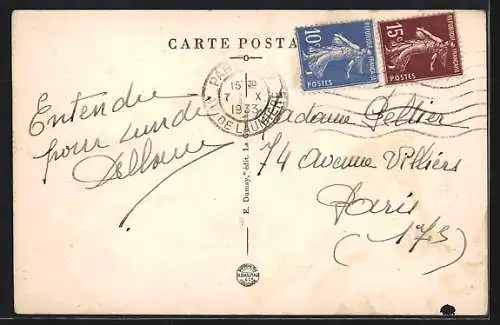 CARTE POSTA
10c
REPUBLIQUE FRANÇAISE
POSTES
15c
REPUBLIQUE FRANÇAISE
POSTES
15 30
7 X
1933
Entendu
pour lundi
Madame Peltier
74 Avenue Villiers
Paris
(17e)
E. Dumey, édit.